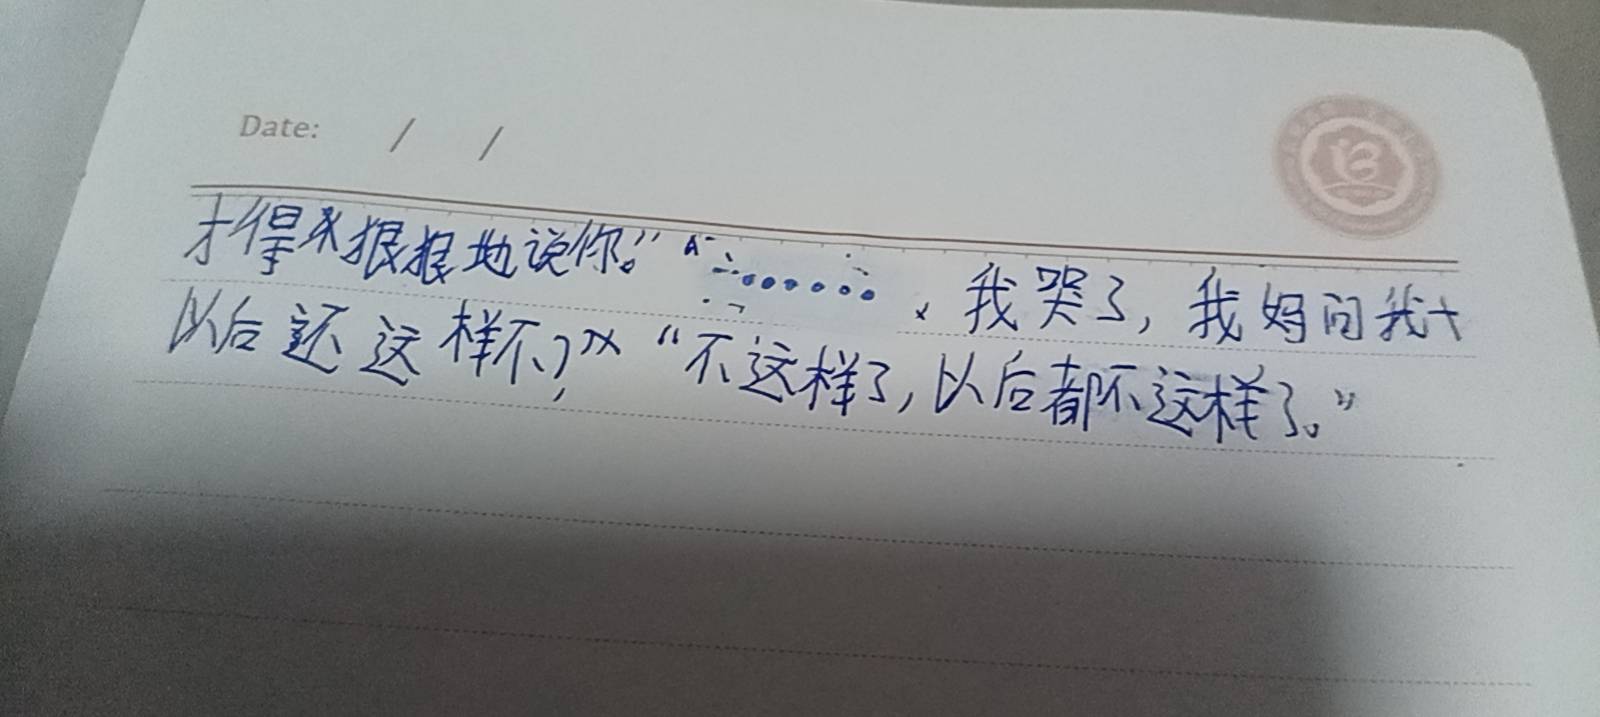 Date: / /
才得来狠狠地说你。” ……，我哭了，我妈问我
以后还这样不？” “不这样了，以后都不这样了。”